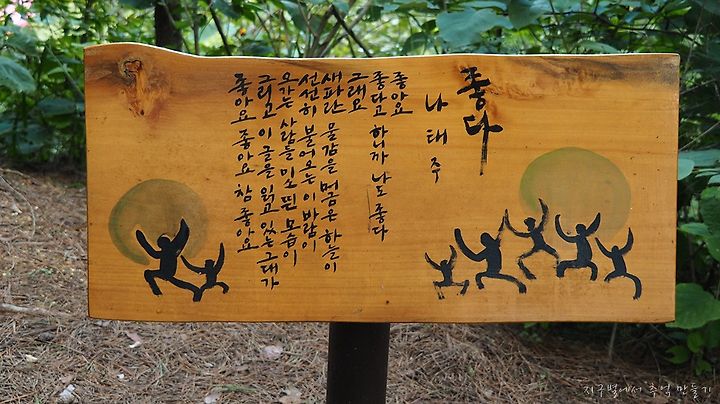 좋다
나태주
좋아요
좋다고 하니까 나도 좋다
그래요
새파란 물감을 머금은 하늘이
선선히 불어오는 이 바람이
오가는 사람들 미소 띤 모습이
그리고 이 글을 읽고 있는 그대가
좋아요 좋아요 참 좋아요
지구별에서 추억 만들기